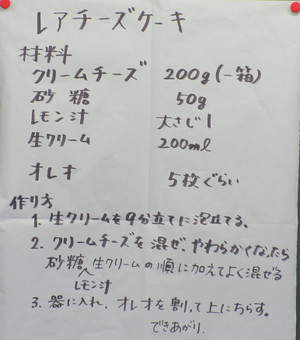 レアチーズケーキ
材料
クリームチーズ 200g(一箱)
砂糖 50g
レモン汁 大さじ1
生クリーム 200ml
オレオ 5枚ぐらい
作り方
1. 生クリームを9分立てに泡立てる。
2. クリームチーズを混ぜ、やわらかくなったら
砂糖、生クリームの順に加えてよく混ぜる
レモン汁
3. 器に入れ、オレオを割って上にちらす。
できあがり.